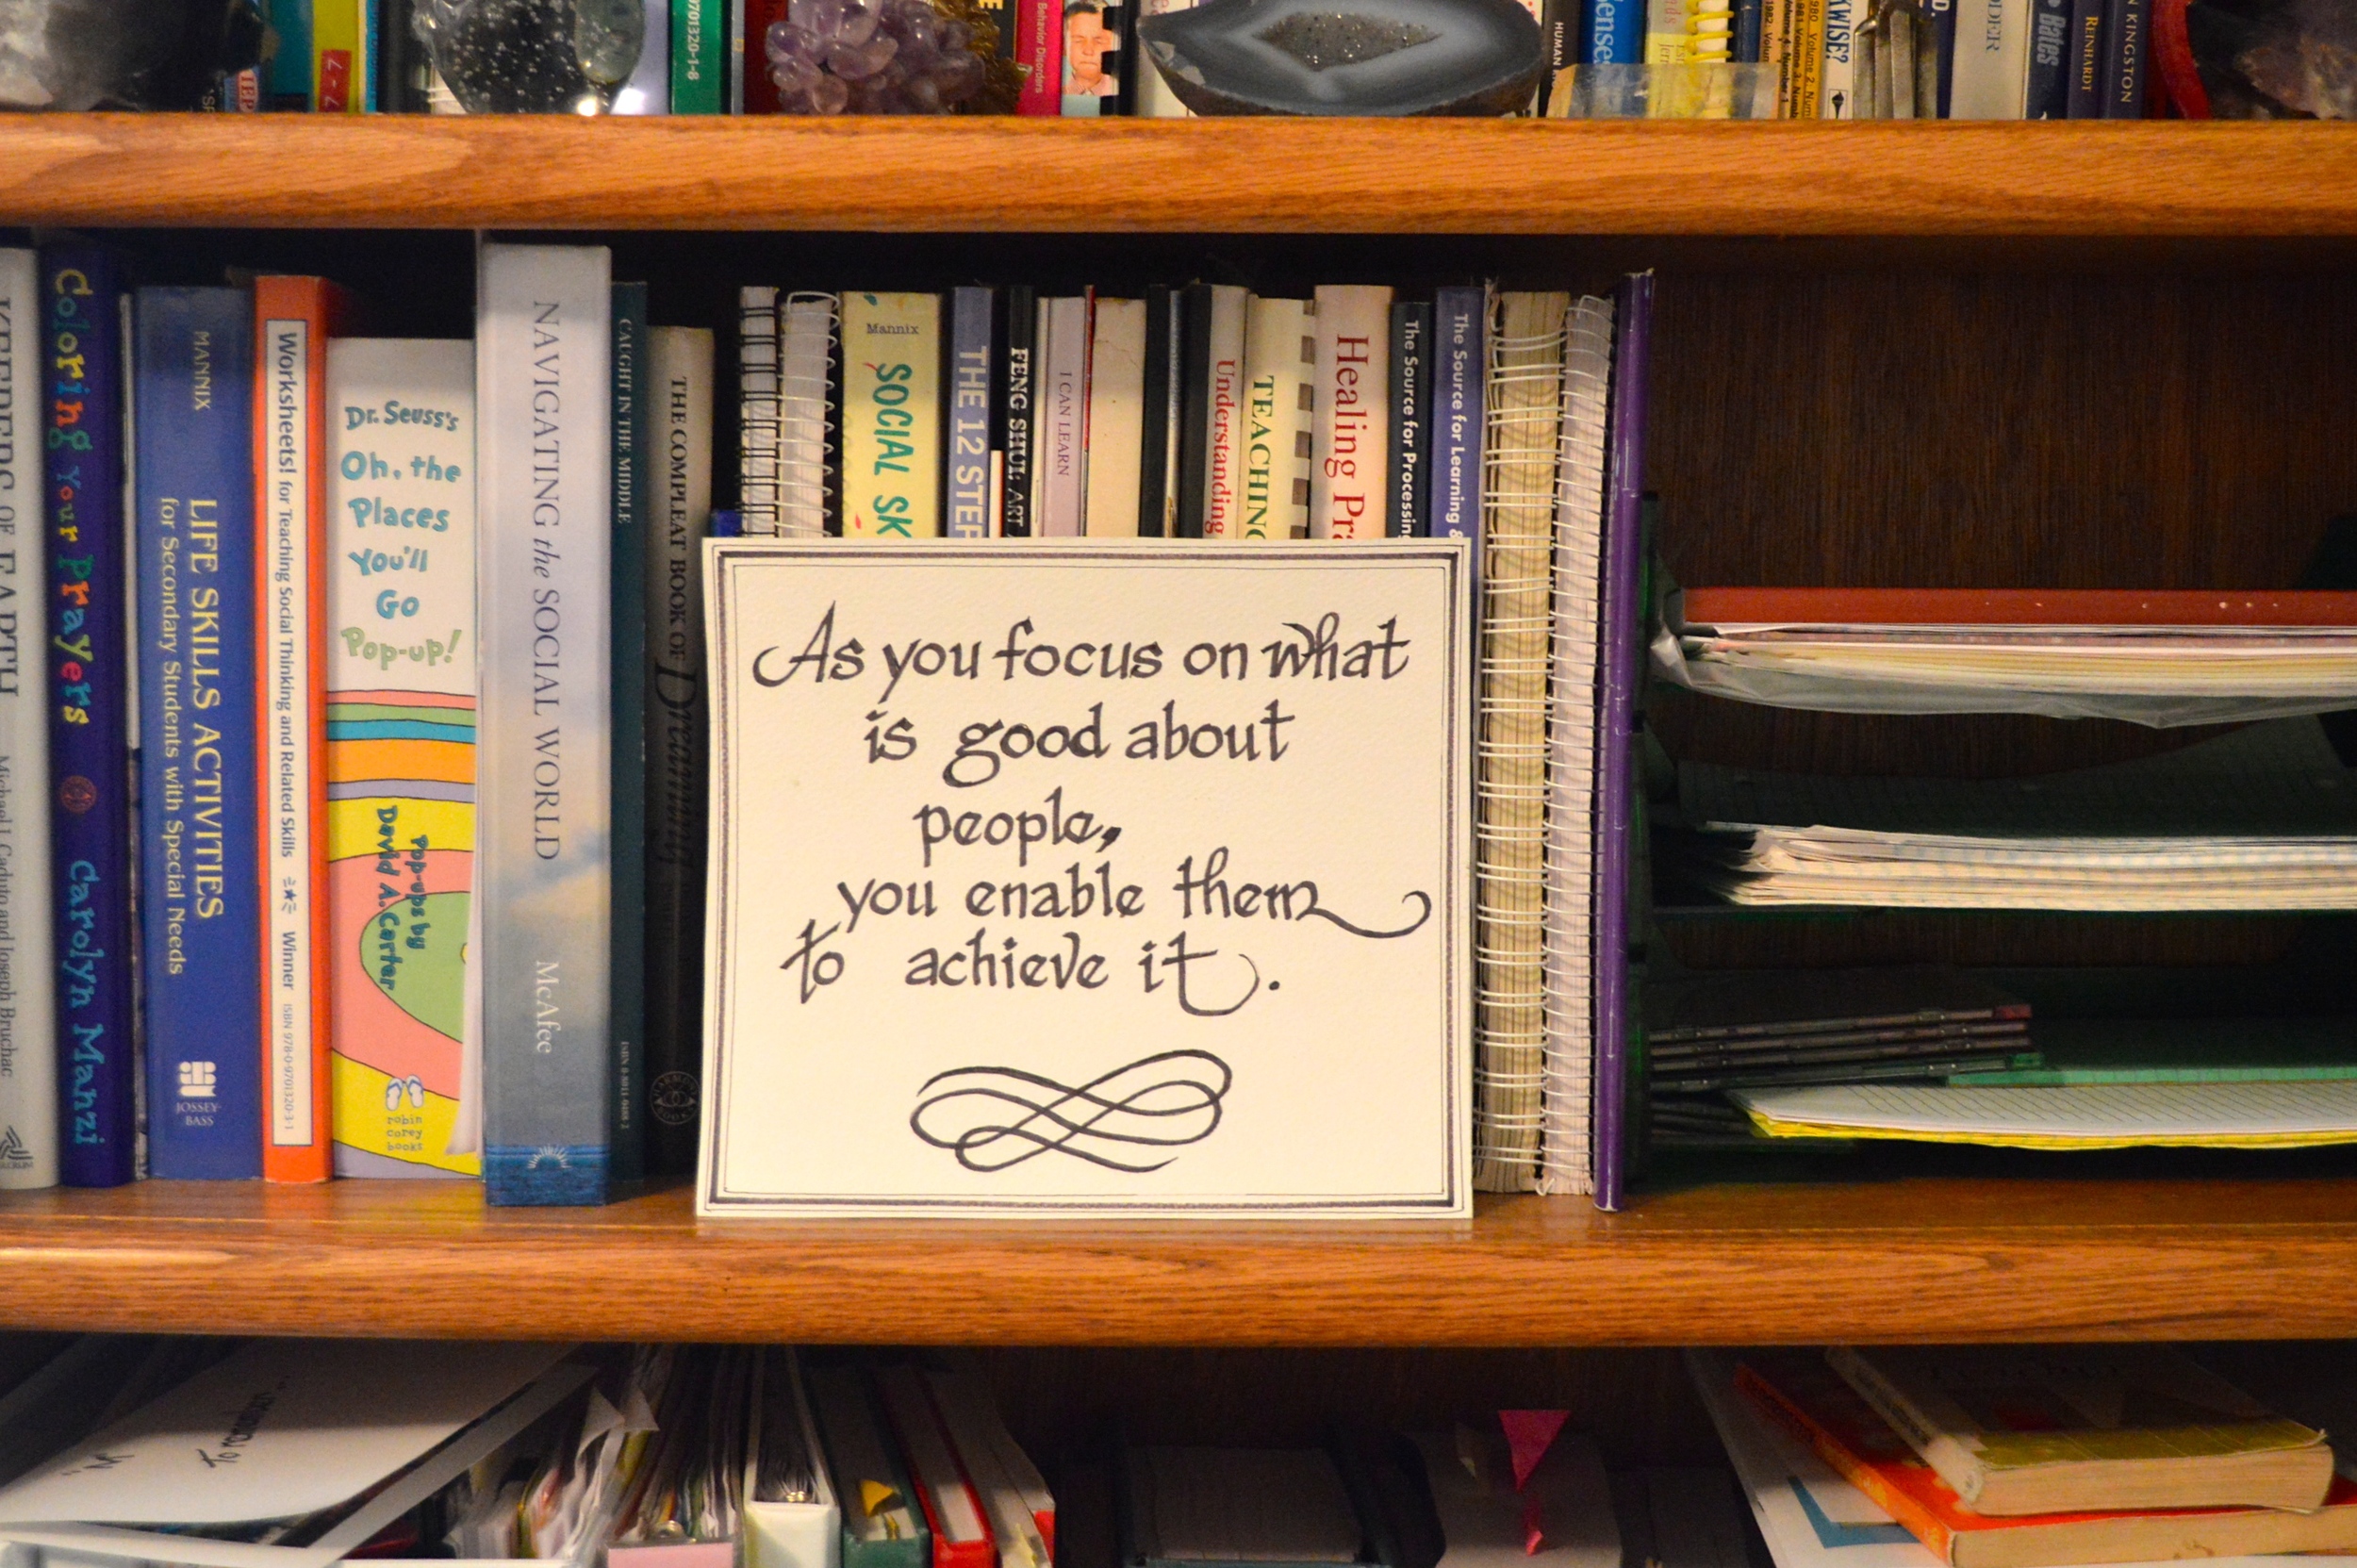 Behavior Disorders
HUMAN
KWISE?
Bates
REINHARDT
KINGSTON
70132O-1-8
KEEPERS OF EARTH
Michael J. Caduto and Joseph Bruchac
Coloring Your Prayers
Carolyn Manzi
MANNIX
LIFE SKILLS ACTIVITIES
for Secondary Students with Special Needs
JOSSEY-
BASS
Worksheets! for Teaching Social Thinking and Related Skills
Winner
ISBN 978-0-9701320-3-1
Dr. Seuss's
Oh, the
Places
You'll
Go
Pop-up!
Pop-ups by
David A. Carter
robin
corey
books
NAVIGATING the SOCIAL WORLD
McAfee
CAUGHT IN THE MIDDLE
THE COMPLEAT BOOK OF Dreaming
Mannix
SOCIAL SK
THE 12 STEP
FENG SHUI: ART
I CAN LEARN
Understanding
TEACHING
Healing Pra
The Source for Processing
The Source for Learning &
As you focus on what
is good about
people,
you enable them
to achieve it.